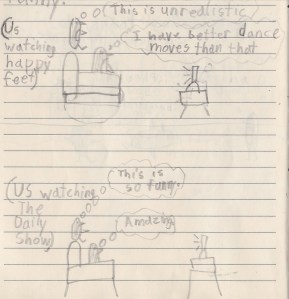 (This is unredlistic
(Us
watching
happy
feet)
I have better dance
moves than that
(Us watching
The
Daily
Show)
This is
so funny.
Amazing.